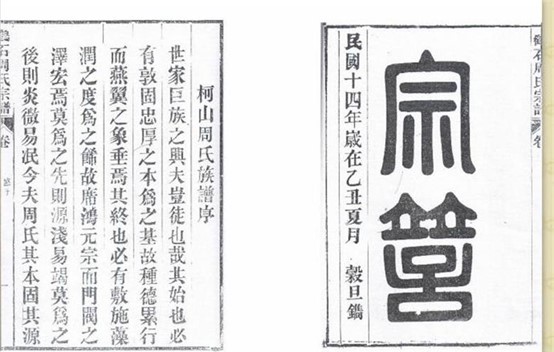 石周氏宗譜 卷
宗
民國十四年歲在乙丑夏月 穀旦鐫
柯山周氏族譜序
世家巨族之興夫豈徒也哉其始也必
有敦固忠厚之本爲之基故種德累行
而燕翼之象垂焉其終也必有敷施藻
潤之度爲之餙故席鴻元宗而門閥之
澤宏焉莫爲之先則源淺易竭莫爲之
後則炎微易泯今夫周氏其本固其源
石周氏宗譜 卷